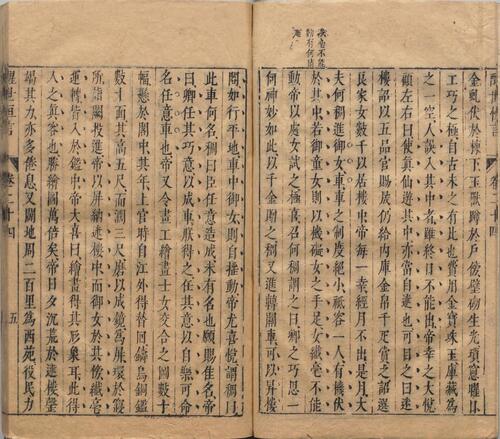 不能
有何
金虬伏於棟下玉獸蹲於戶傍壁砌生光瑣窓曜日
工巧之極自古未之有也費用金寶珠玉庫藏爲
之一空人誤入其中者雖終日不能出帝幸之大悅
顧左右曰使真仙遊其中亦當自迷也可目之曰迷
樓詔以五品官賜昃仍給内庫金帛千疋賞之詔選
良家女數千以居樓中帝每一幸經月不出是月大
夫何稠進御女車車之制度絕小秪容一人有機伏
於其中若御童女則以機礙女之手足女纖毫不能
動帝以處女試之極喜召何稠謂之曰卿之巧思一
何神妙如此以千金贈之稠又進轉關車可以昇樓
閣如行平地車中御女則自搖動帝尤喜悅謂稠曰
此車何名稠曰臣任意造成未有名也願賜佳名帝
曰卿任其巧意以成車朕得之任其意以自樂可命
名任意車也帝又令畫工繪畫士女交合之圖數十
幅懸於閣中其年上官時自江外得替回鑄烏銅鑑
數十面其高五尺而闊三尺磨以成鏡爲屏環於寢
所詣闕投進帝以屏納迷樓中而御女於其傍纖毫
運轉皆入於鑑中帝大喜曰繪畫得其形象耳此得
人之真容也勝繪圖萬倍矣帝日夕沉荒於迷樓罄
竭其力亦多倦息又闢地周二百里爲西苑役民力
醒世恒言
卷二十四
五